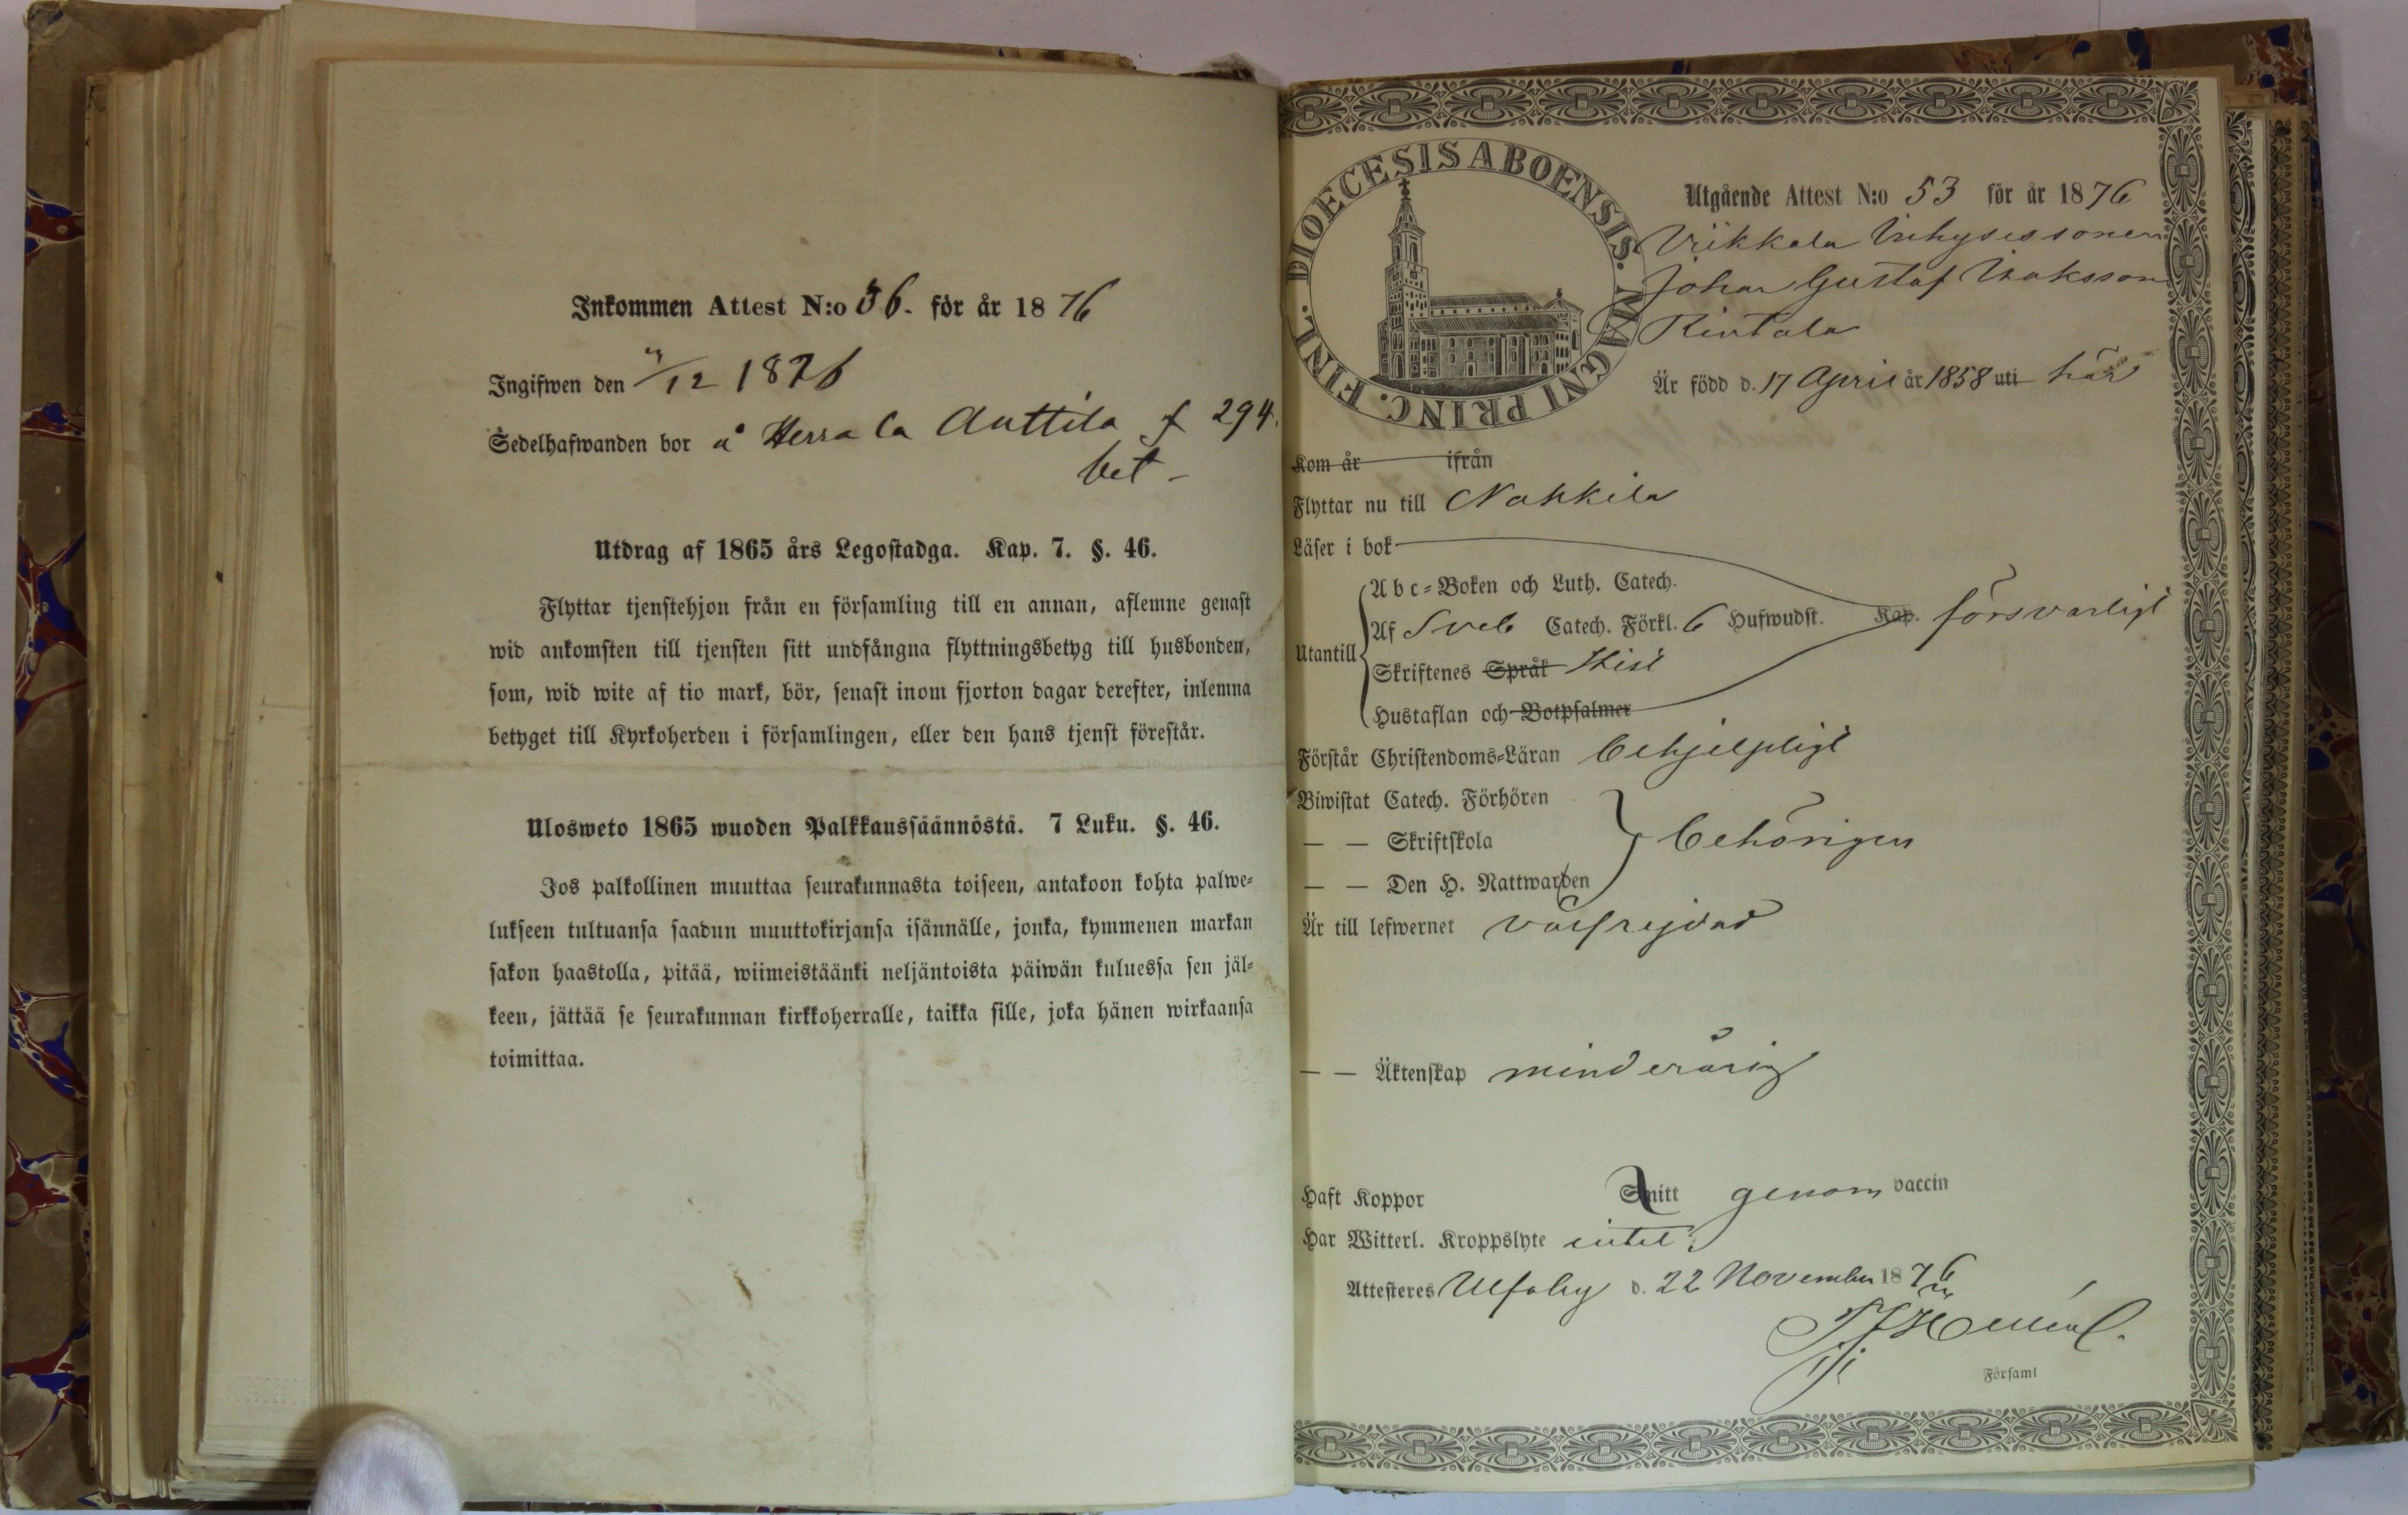 Inkommen Attest N:o 56. för år 1876
Ingifwen den 4/12 1876
Sedelhafwanden bor å Herrala Anttila f 294.
bet -
Utdrag af 1865 års Legostadga. Kap. 7. §. 46.
Flyttar tjenstehjon från en församling till en annan, aflemne genast
wid ankomsten till tjensten sitt undfångna flyttningsbetyg till husbonden,
som, wid wite af tio mark, bör, senast inom fjorton dagar derefter, inlemna
betyget till Kyrkoherden i församlingen, eller den hans tjenst förestår.
Ulosweto 1865 wuoden Palkkaussäännöstä. 7 Luku. §. 46.
Jos palkollinen muuttaa seurakunnasta toiseen, antakoon kohta palwe-
lukseen tultuansa saadun muuttokirjansa isännälle, jonka, kymmenen markan
sakon haastolla, pitää, wiimeistäänki neljäntoista päiwän kuluessa sen jäl-
keen, jättää se seurakunnan kirkkoherralle, taikka sille, joka hänen wirkaansa
toimittaa.
DIOECESIS ABOENSIS. MAGNI PRINC. FINL.
Utgående Attest N:o 53 för år 1876
Viikkala Inhysessonen
Johan Gustaf Isaksson
Rintala
Är född d. 17 April år 1858 uti här
Kom år ifrån
Flyttar nu till Nakkila
Läser i bok
Utantill
Abc-Boken och Luth. Catech.
Af Sveb Catech. Förkl. 6 Hufwudst. Kap. försvarligt
Skriftenes Språk Hist
Hustaflan och Botpsalmer
Förstår Christendoms-Läran behjelpligt
Biwistat Catech. Förhören
— — Skriftskola behörigen
— — Den H. Nattwarden
Är till lefwernet välfrejdad
— — Äktenskap minderårig
Haft Koppor Smitt genom vaccin
Har Witterl. Kroppslyte intet
Attesteres Ulfsby d. 22 November 1876
Församl